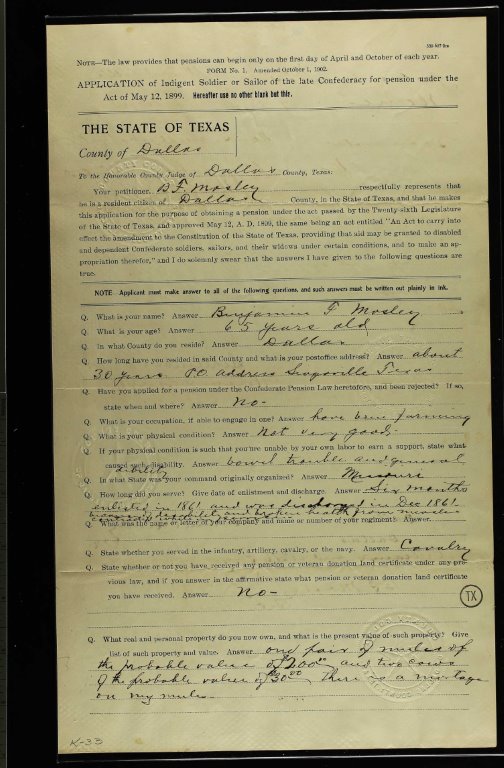 NOTE—The law provides that pensions can begin only on the first day of April and October of each year.
FORM No. 1. Amended October 1, 1902.
APPLICATION of Indigent Soldier or Sailor of the late Confederacy for pension under the
Act of May 12, 1899. Hereafter use no other blank but this.
THE STATE OF TEXAS
County of Dallas
To the Honorable County Judge of Dallas County, Texas:
Your petitioner, B F. Mosley respectfully represents that
he is a resident citizen of Dallas County, in the State of Texas, and that he makes
this application for the purpose of obtaining a pension under the act passed by the Twenty-sixth Legislature
of the State of Texas, and approved May 12, A. D. 1899, the same being an act entitled "An Act to carry into
effect the amendment to the Constitution of the State of Texas, providing that aid may be granted to disabled
and dependent Confederate soldiers, sailors, and their widows under certain conditions, and to make an ap-
propriation therefor," and I do solemnly swear that the answers I have given to the following questions are
true.
NOTE Applicant must make answer to all of the following questions, and such answers must be written out plainly in ink.
Q. What is your name? Answer Benjamin F Mosley
Q. What is your age? Answer 65 years old
Q. In what County do you reside? Answer Dallas
Q. How long have you resided in said County and what is your postoffice address? Answer about
30 years PO address Seagoville Texas
Q. Have you applied for a pension under the Confederate Pension Law heretofore, and been rejected? If so,
state when and where? Answer no-
Q. What is your occupation, if able to engage in one? Answer have been farming
Q. What is your physical condition? Answer not very good-
Q. If your physical condition is such that you are unable by your own labor to earn a support, state what
caused such disability. Answer bowel trouble and general
dibility
Q. In what State was your command originally organized? Answer Missouri
Q. How long did you serve? Give date of enlistment and discharge. Answer Six months
enlisted in 1861 and was discharged in Dec 1861
and broken health from measles
Q. What was the name or letter of your company and name or number of your regiment? Answer
Q. State whether you served in the infantry, artillery, cavalry, or the navy. Answer Cavalry
Q. State whether or not you have received any pension or veteran donation land certificate under any pre-
vious law, and if you answer in the affirmative state what pension or veteran donation land certificate
you have received. Answer no-
TX
Q. What real and personal property do you now own, and what is the present value of such property? Give
list of such property and value. Answer one pair of mules of
the probable value of $200.00 and two cows
of the probable value of $30.00 There is a mortage
on my mules
K-33